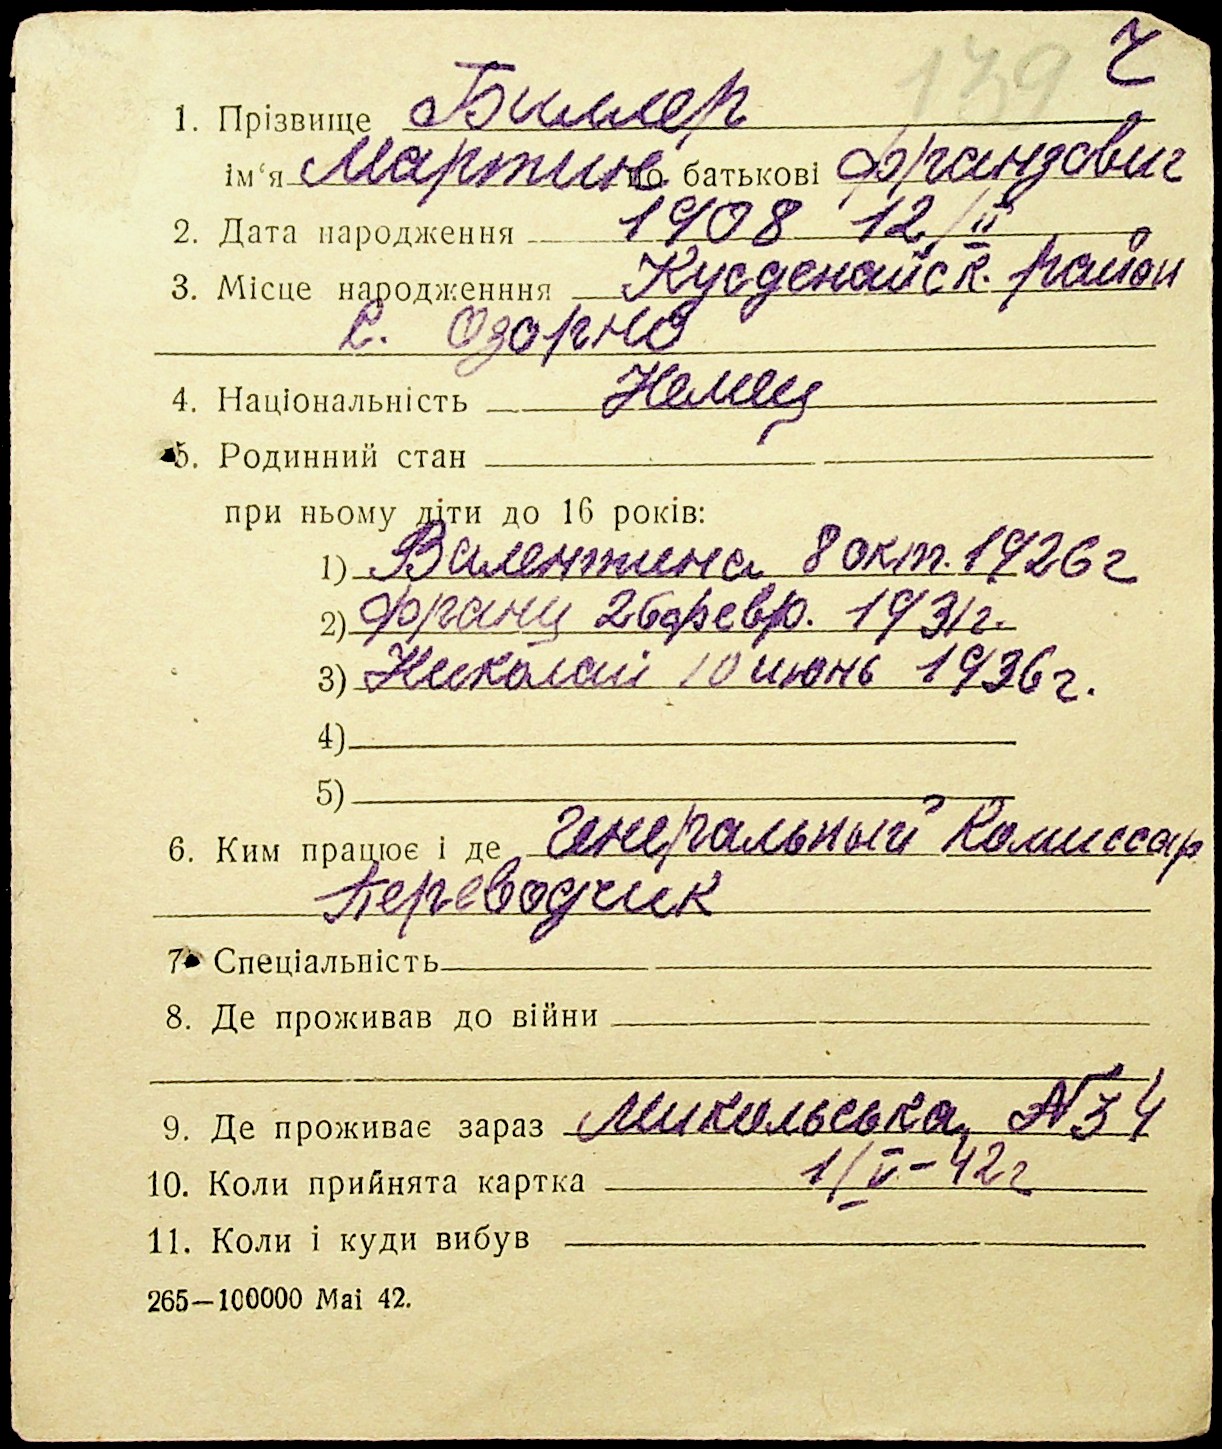 139 Ч
1. Прізвище Биллер
ім‘я Мартин по батькові Францович
2. Дата народження 1908 12/II
3. Місце народженння район
с. Озорно
4. Національність Немец
5. Родинний стан
при ньому діти до 16 років:
1) Валентина 8 окт. 1926 г
2) Франц 26 февр. 1931 г.
3) Николай 10 июнь 1936 г.
4)
5)
6. Ким працює і де Генеральный Комиссар
Переводчик
7. Спеціальність
8. Де проживав до війни
9. Де проживає зараз Микольська, № 34
10. Коли прийнята картка 1/V-42 г
11. Коли і куди вибув
265—100000 Маі 42.